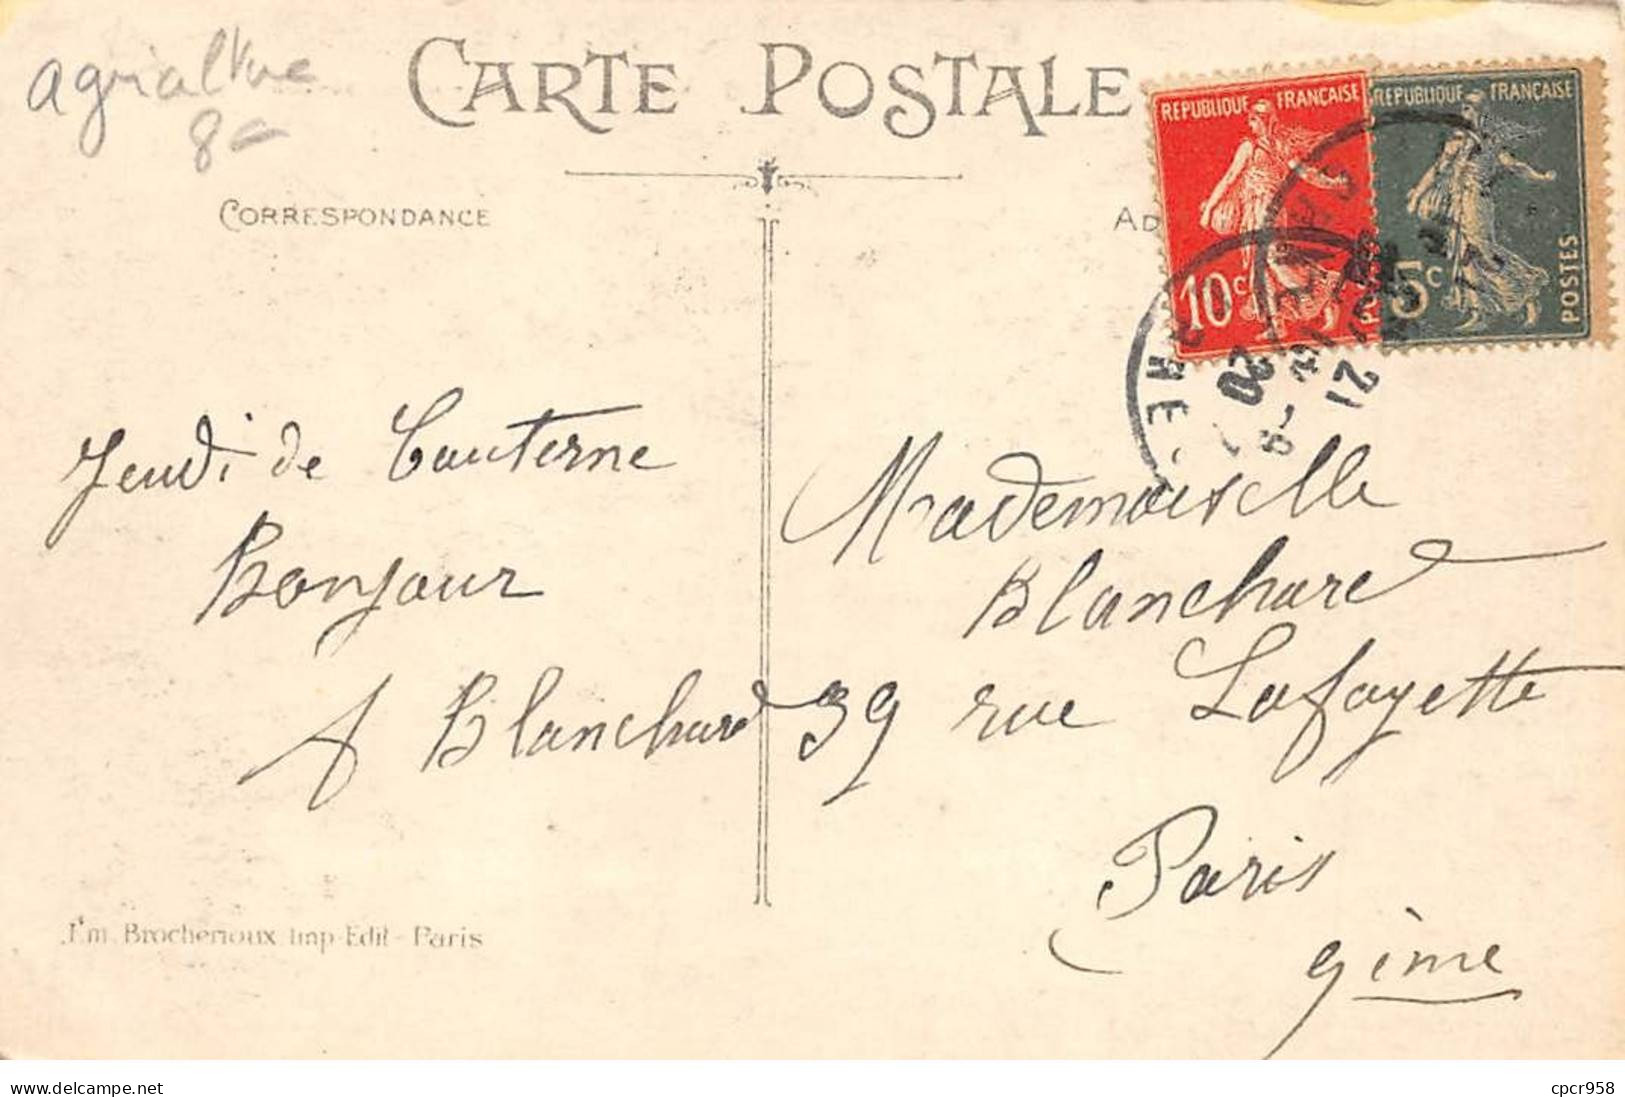 agricultvre
8-
CARTE POSTALE
CORRESPONDANCE
AD
REPUBLIQUE FRANÇAISE
10c
REPUBLIQUE FRANÇAISE
5c
POSTES
20
21
Jeudi de
Bonjour
A Blanchard
Mademoiselle
Blanchard
39 rue Lafayette
Paris
9ème
Em. Brocherioux Imp-Edit - Paris
delcampe.net
cpcr958